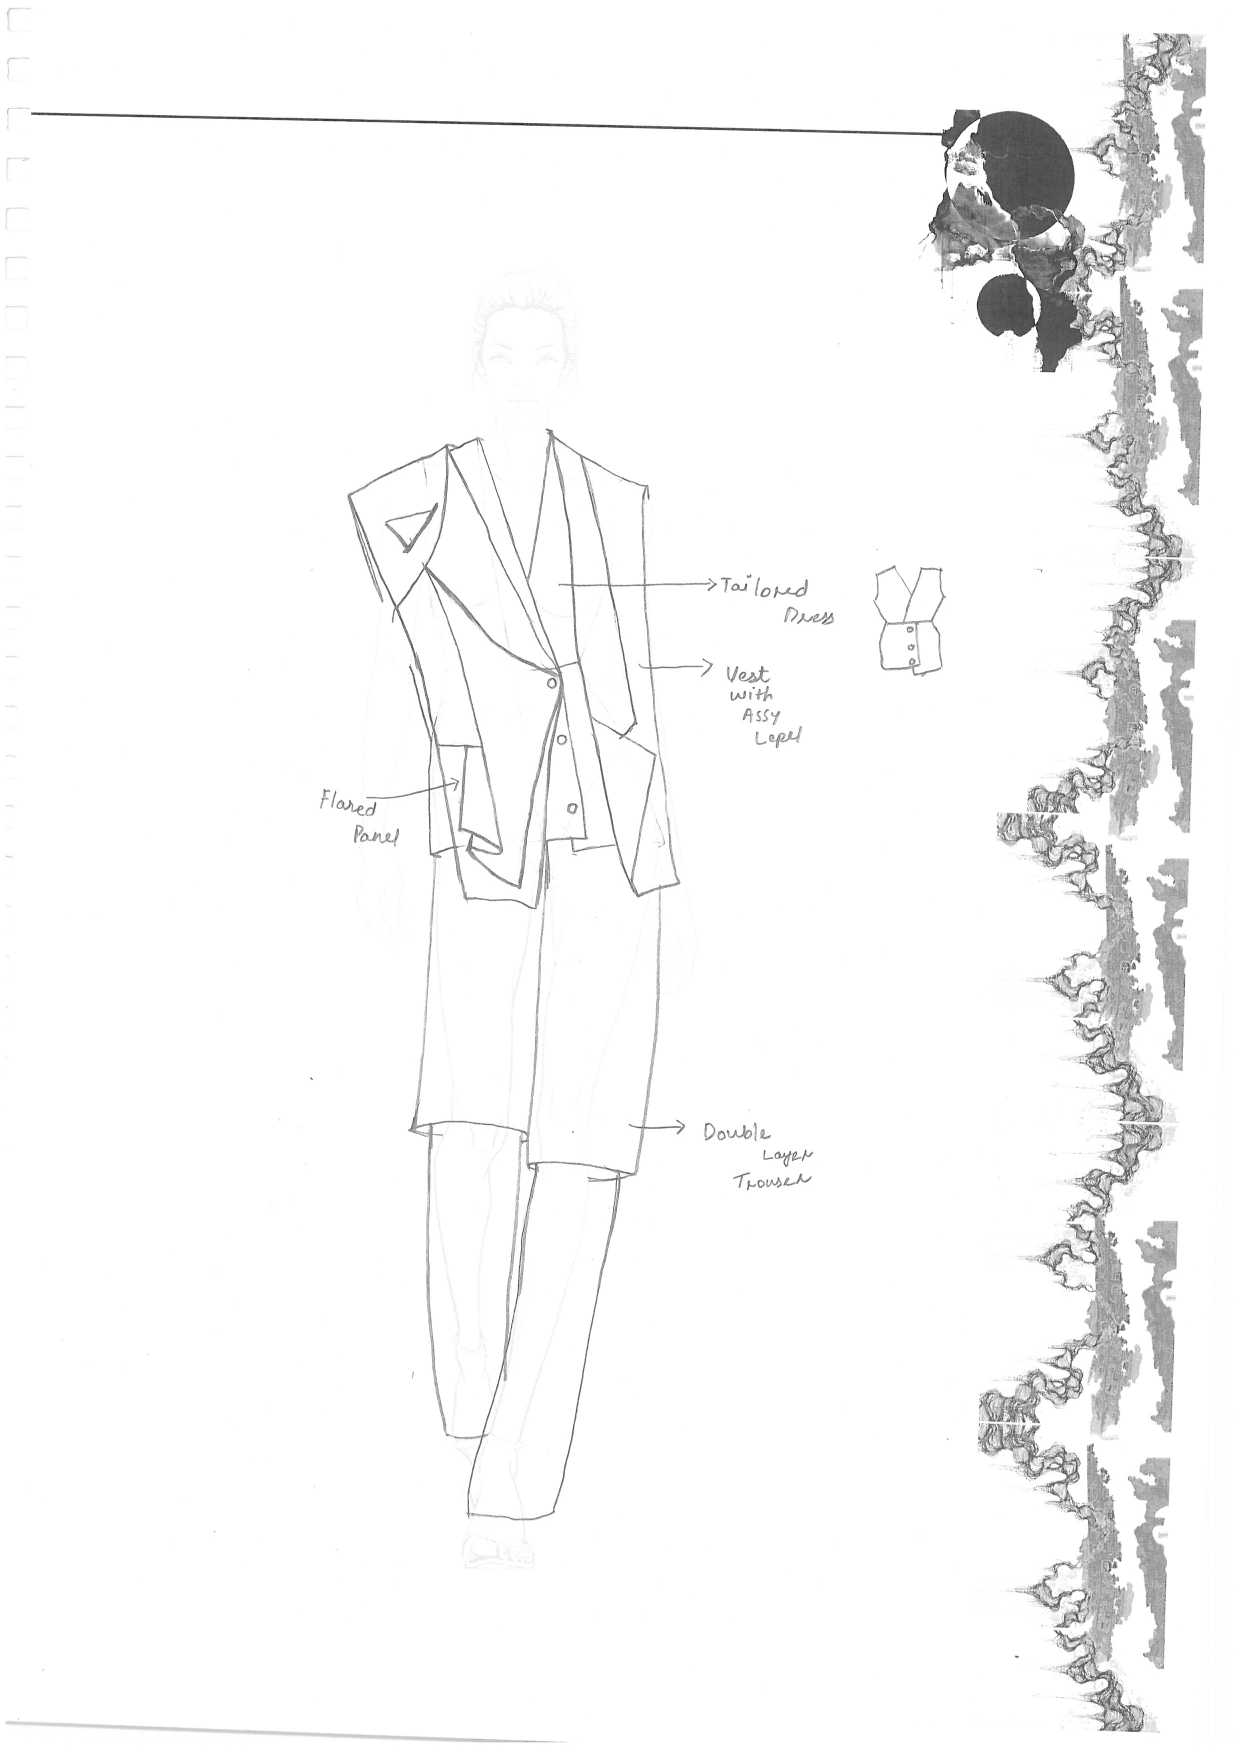 Tailored
Dress
Vest
with
Assy
Lepel
Flared
Panel
Double
Layer
Trouser